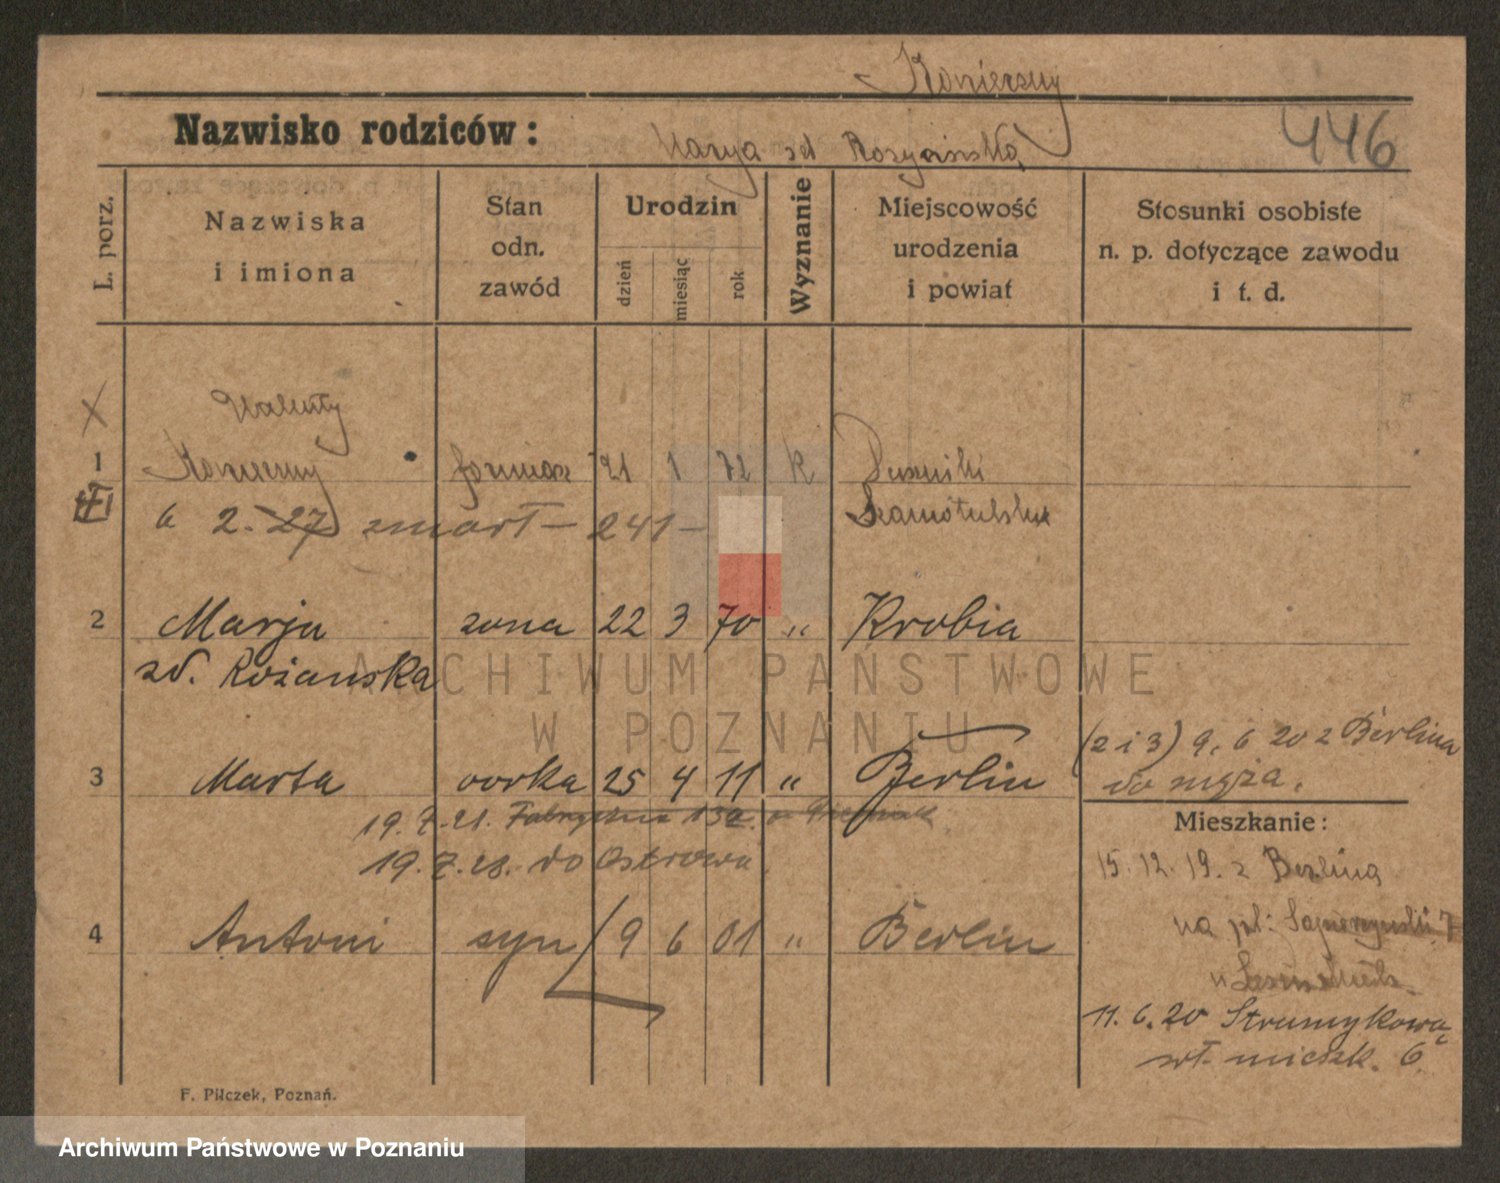 Konierzny
Nazwisko rodziców:
Marya zd
446
L. porz.
Nazwiska
i imiona
Stan
odn.
zawód
Urodzin
dzień
miesiąc
rok
Wyznanie
Miejscowość
urodzenia
i powiat
Stosunki osobiste
n. p. dotyczące zawodu
i t. d.
Walenty
1 21 1 72 k
6 2. 27 zmarł - 241 -
2 Marja żona 22 3 70 " Krobia
zd. Rożańska
(2 i 3) 9. 6 20 z Berlina
do męża.
3 Marta córka 25 4 11 " Berlin
19. 7. 21. Fabryczna
19. 7. 21. do Ostrowa
4 Antoni syn 9 6 01 " Berlin
Mieszkanie:
15. 12. 19. z Berlina
na pl:
11. 6. 20 Strumykowa
wł. mieszk. 6
F. Pilczek, Poznań.
ARCHIWUM PAŃSTWOWE
W POZNANIU
Archiwum Państwowe w Poznaniu